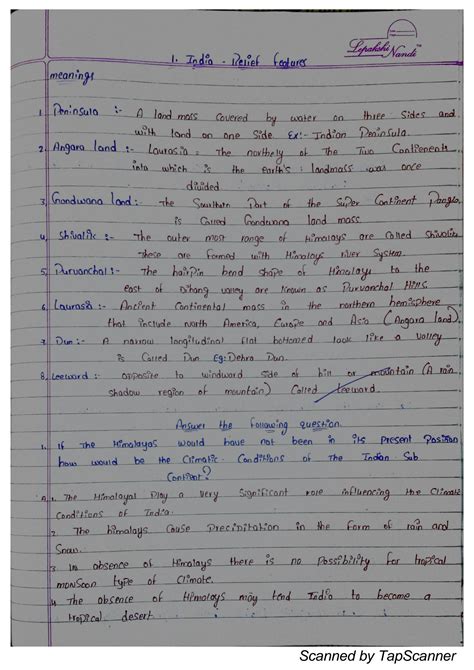 Lepakshi Nandi™
1. India - Relief features
meanings
1. Peninsula :- A land mass covered by water on three sides and
with land on one side. Ex:- Indian Peninsula.
2. Angara land :- Laurasia = The northely of The Two Contienents
into which is the earth's landmass was once
divided
3. Gondwana land :- The Southern Part of the Super Continent Pangia
is Called Gondwana land mass
4. Shivalik :- The outer most range of Himalayas are Called Shivaliks
these are formed with Himalays river System.
5. Purvanchal :- The hairpin bend shape of Himalays to the
east of Dihang valley are known as Purvanchal Hills
6. Laurasia :- Ancient Continental mass in the northern hemisphere
that include north America, Europe and Asia (Angara land)
7. Dun :- A narrow longitudinal flat bottomed look like a valley
is Called Dun Eg: Dehra Dun.
8. Leeward :- opposite to windward side of hill or mountain (A rain
shadow region of mountain) Called leeward.
Answer the following question
1. If The Himalayas would have not been in its present Position
how would be the Climatic Conditions of The Indian Sub
Continent?
A. 1. The Himalayas Play a very Significant role influencing the Climate
Conditions of India.
2 The himalays Cause Precipitation in the form of rain and
Snow.
3 In absence of Himalays there is no Possibility for tropical
monsoon type of Climate.
4 The absence of Himalays may tend India to become a
tropical desert.
Scanned by TapScanner